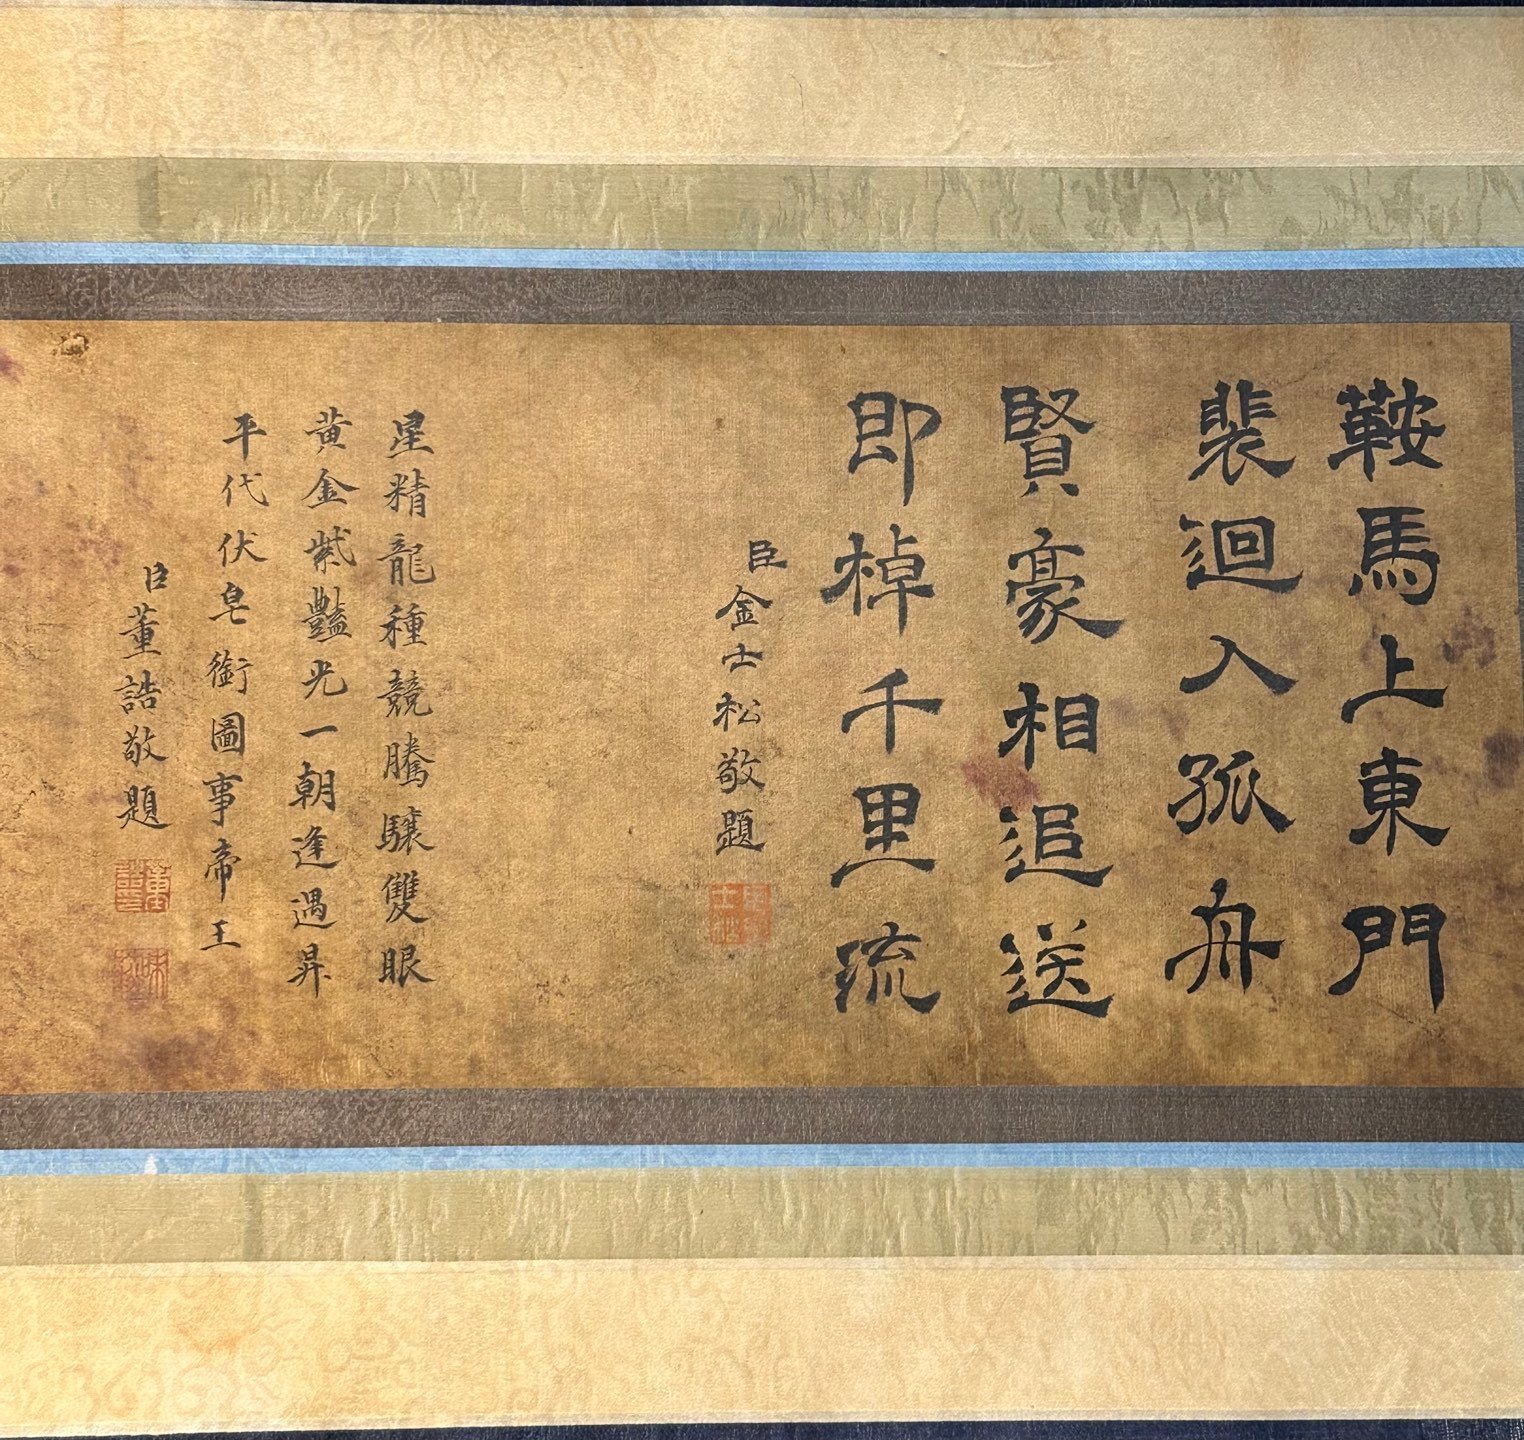 鞍馬上東門
裴迴入孤舟
賢豪相追送
即棹千里流
臣金士松敬題
星精龍種競騰驤雙眼
黃金紫豔光一朝逢遇昇
平代伏皂銜圖事帝王
臣董誥敬題